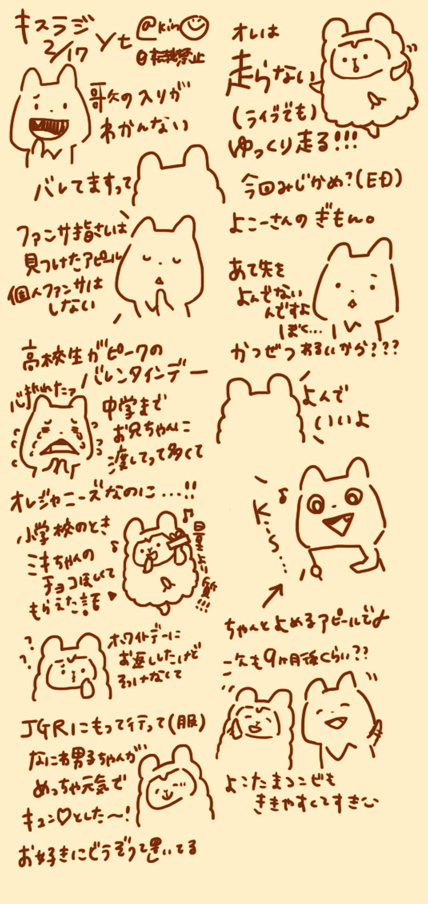 キスラジ
2/17
Yt
@kin
@転載禁止
歌の入りが
わかんない
バレてますって
ファンサ指さしは
見つけたアピール
個人ファンサは
しない
高校生がピークの
バレンタインデー
心折れたァ
中学まで
お兄ちゃんに
渡してって多くて
オレジャニーズなのに…!!
小学校のとき
ミキちゃんの
チョコほして
もらえた話♥
量より質!!!
ホワイトデーに
お返ししたけど
そっけなくて
JGRにもって行って(服)
なにわ男子ちゃんが
めっちゃ元気で
キュン♡とした〜!
お好きにどうぞって置いてる
オレは
走らない
(ライブでも)
ゆっくり走る!!!
今回みじかめ?(ED)
よこーさんのぎもん。
あて先を
よんでない
んですよ
ぼく…
かつぜつわるいから???
よんで
いいよ
K
i
S…
ちゃんとよめるアピールで♪
次も9ヶ月後くらい??
よこたまコンビも
ききやすくてすき